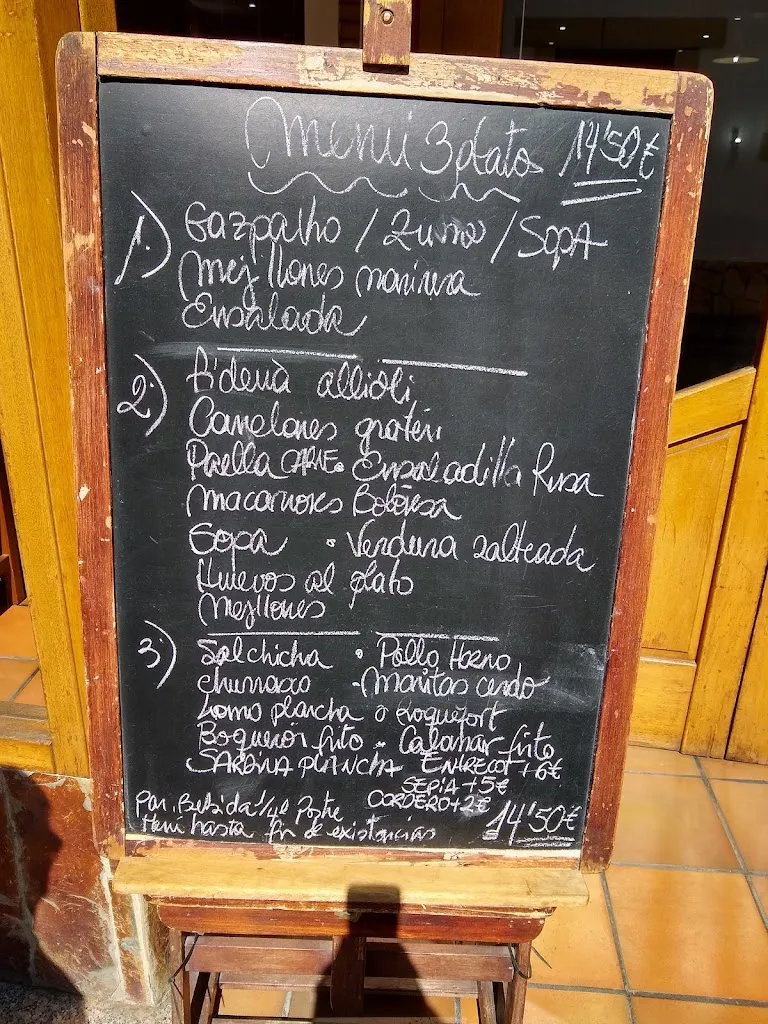 Menú 3 platos 14'50€
1.) Gazpacho / Zumo / Sopa
Mejllones marinera
Ensalada
2.) Fideuà allioli
Canelones gratén
Paella CARNE. Ensaladilla Rusa
Macarrones Boloñesa
Sopa • Verdura salteada
Huevos al plato
Mejllones
3) Salchicha • Pollo Horno
churrasco - Manitas cerdo
Lomo plancha o Roquefort
Boqueron frito - Calamar frito
SARDINA PLANCHA ENTRECOT +6€
SEPIA +5€
CORDERO +2€
Pan. Bebida 1/4 Postre
Menú hasta fin de existencias 14'50€